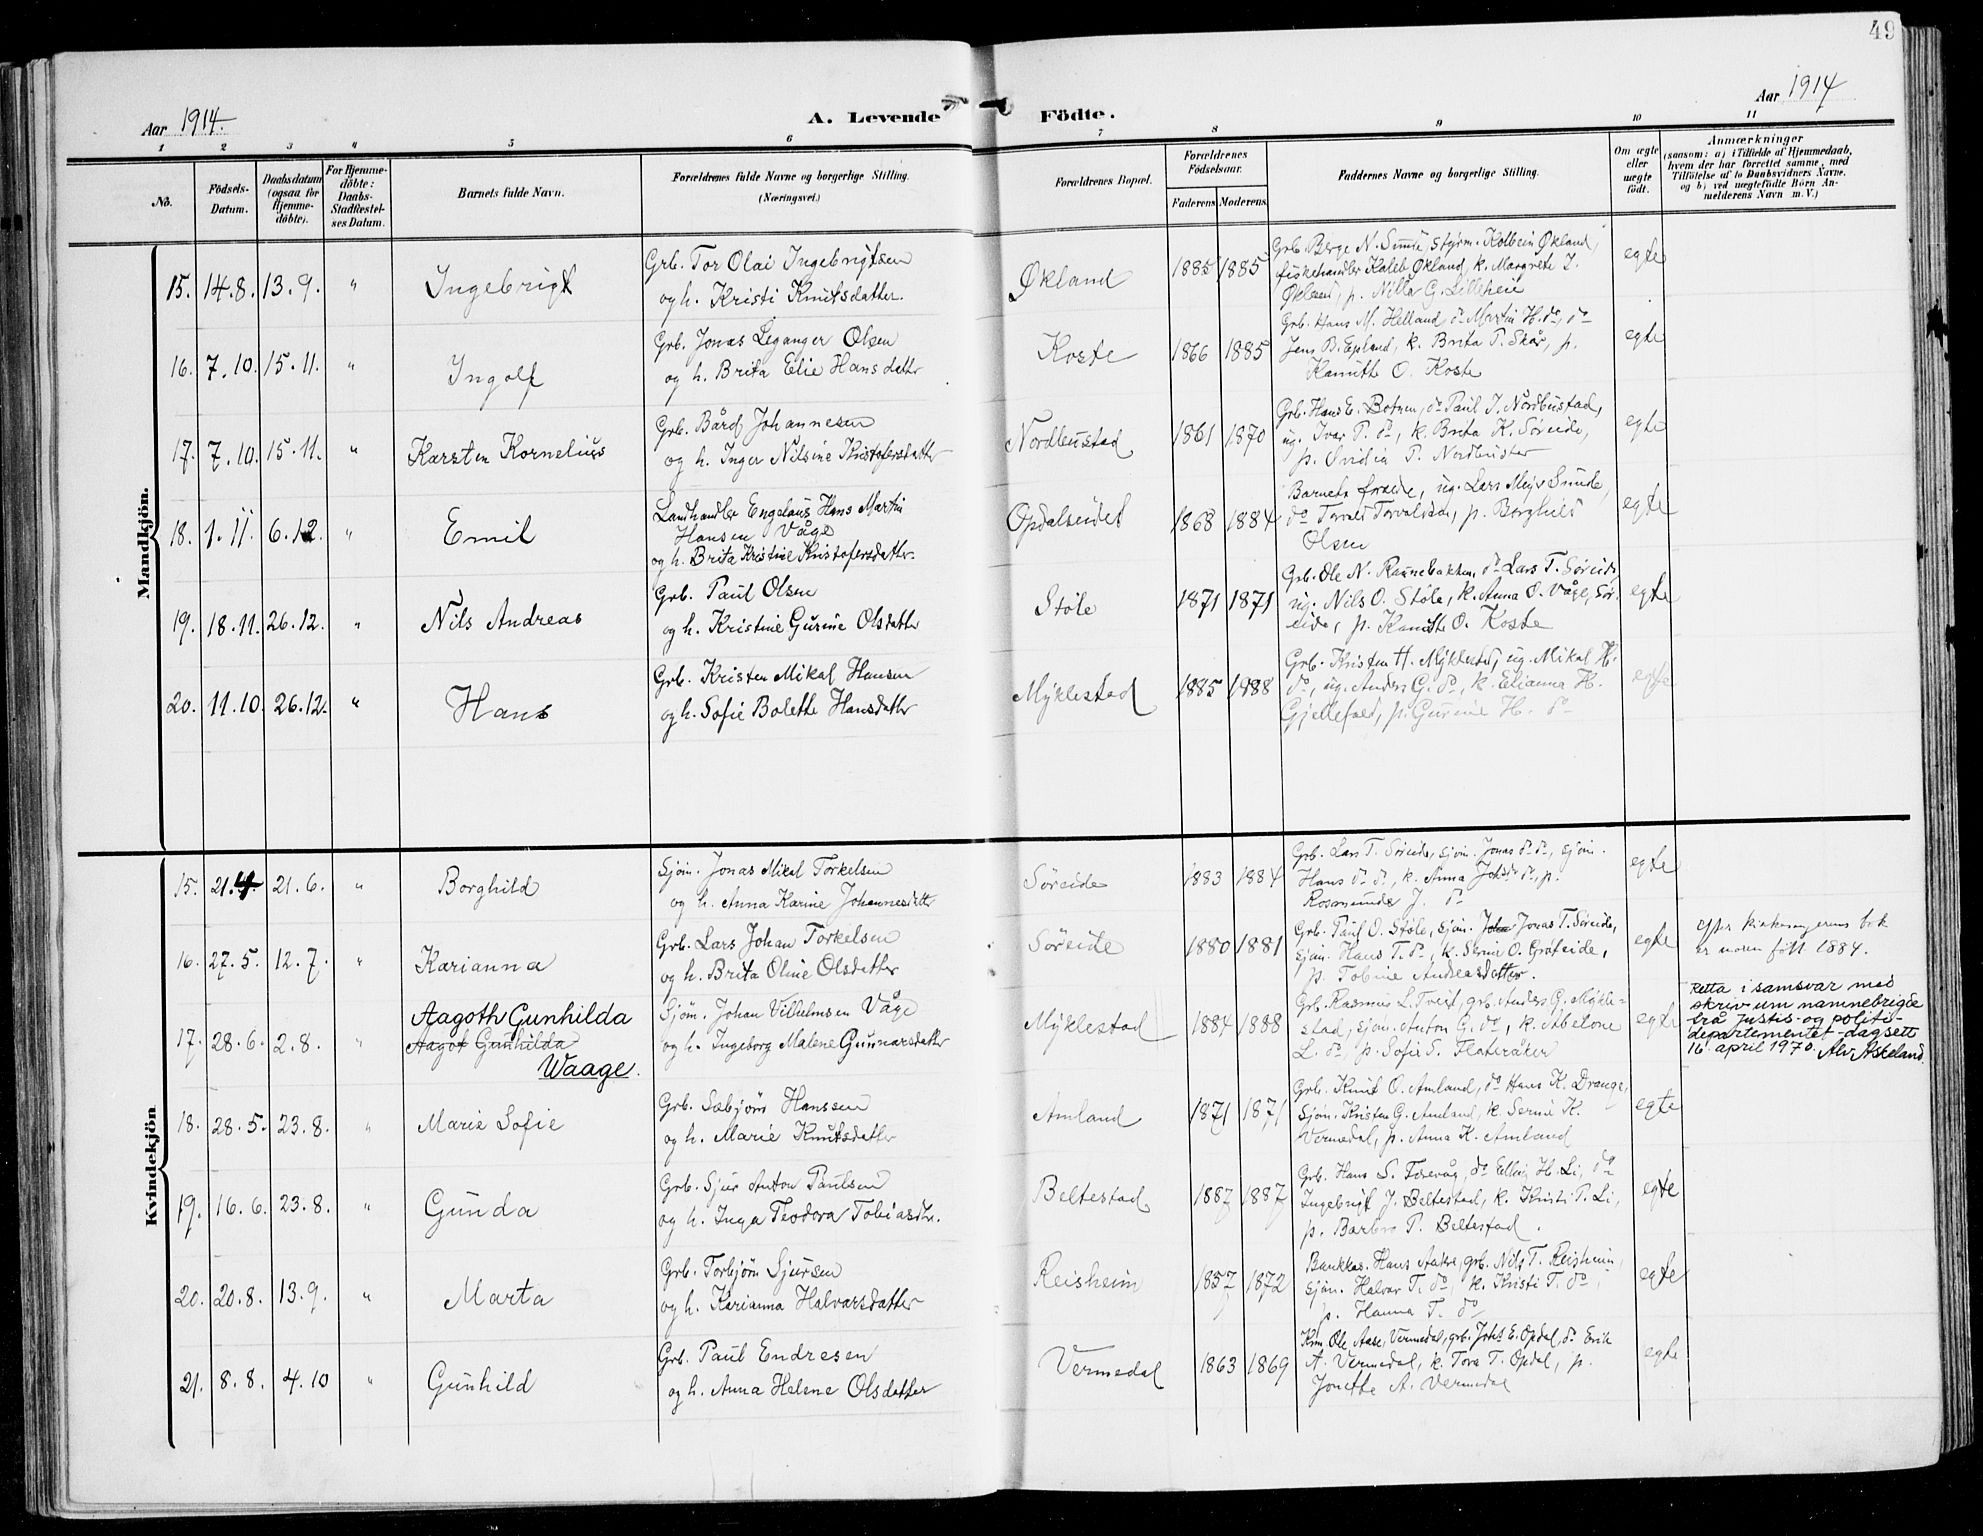 49
Aar 1914.
A. Levende Födte.
Aar 1914
1 2 3 4 5 6 7 8 9 10 11
No.
Födsels-
Datum.
Daabsdatum
(ogsaa for
Hjemme-
döbte).
For Hjemme-
döbte:
Daabs-
Stadfæstel-
ses Datum.
Barnets fulde Navn.
Forældrenes fulde Navne og borgerlige Stilling.
(Næringsvei.)
Forældrenes Bopæl.
Forældrenes
Födselsaar.
Faderens Moderens.
Faddernes Navne og borgerlige Stilling.
Om ægte
eller
uægte
födt.
Anmærkninger
(saasom: a) i Tilfælde af Hjemmedaab,
hvem der har forrettet samme, med
Tilföielse af to Daabsvidners Navne,
og b) ved uægtefödte Börn An-
melderens Navn m. V.)
Mandkjön.
15. 14.8. 13.9. " Ingebrigt
Grb. Tor Olai Ingebrigtsen
og h. Kristi Knutsdatter.
Økland 1885 1885
Grb. Berge N. Sunde, styrm. Kolbein Økland,
fiskehandler Kaleb Økland, k. Margrete I.
Økland, p. Nilla G. Lilleheie
egte
16. 7.10. 15.11. " Ingolf
Grb. Jonas Leganger Olsen
og h. Brita Elie Hansdatter
Koste 1866 1885
Grb. Hans M. Helland, do Martin H. do, do
Jens B. Epland, k. Brita T. Skår, p.
Kanutte O. Koste
egte
17. 7.10. 15.11. " Karsten Kornelius
Grb. Bård Johannesen
og h. Inger Nilsine Kristofersdatter
Nordbustad 1861 1870
Grb. Hans E. Botnen, do Paul J. Nordbustad,
ug. Ivar P. do, k. Brita K. Søreide,
p. Ovidia P. Nordbustad
egte
18. 1.11. 6.12. " Emil
Landhandler Engelaus Hans Martin
Hansen Våge
og h. Brita Kristine Kristofersdatter.
Opdalseidet 1868 1884
Barnets forælde, ug. Lars Meyer Sunde,
do Torvald Torvaldsen, p. Borghild
Olsen
egte
19. 18.11. 26.12. " Nils Andreas
Grb. Paul Olsen
og h. Kristine Gurine Olsdatter
Støle 1871 1871
Grb. Ole N. Raunebakken, do Lars T. Søreide,
ug. Nils O. Støle, k. Anna O. Våge, Sør-
eide, p. Kanutte O. Koste
egte
20. 11.10. 26.12. " Hans
Grb. Kristen Mikal Hansen
og h. Sofie Bolette Hansdatter
Myklestad 1885 1888
Grb. Kristen H. Myklestad, ug. Mikal H.
do, ug. Anders G. do, k. Elianna H.
Gjellefald, p. Gurine H. do
egte
Kvindekjön
15. 21.4. 21.6. " Borghild
Sjøm. Jonas Mikal Torkelsen
og h. Anna Karine Johannesdatter
Søreide 1883 1884
Grb. Lars T. Søreide, sjøm. Jonas do do, sjøm.
Hans do do, k. Anna Johsdr do, p.
Rosamunde J. do
egte
16. 27.5. 12.7. " Karianna
Grb. Lars Johan Torkelsen
og h. Brita Oline Olsdatter
Søreide 1880 1881
Grb. Paul O. Støle, sjøm. Jonas T. Søreide,
sjøm. Hans T. do, k. Serine O. Grøteide,
p. Tobine Andreasdatter.
egte
efter kirkesogerens bok
er moren født 1884.
17. 28.6. 2.8. " Aagoth Gunhilda
Aagot Gunhilda
Waage.
Sjøm. Johan Vilhelmsen Våge
og h. Ingeborg Malene Gunnarsdatter
Myklestad 1884 1888
Grb. Rasmus L. Tveit, grb. Anders G. Mykle-
stad, sjøm. Anton G. do, k. Abelone
L. do, p. Sofie S. Flateråker
egte
Retta i samsvar med
skriv um namnebrigde
frå Justis- og politi-
departementet - dagsett
16. april 1970. Alv Askeland.
18. 28.5. 23.8. " Marie Sofie
Grb. Sæbjørn Hanssen
og h. Marie Knutsdatter
Amland 1871 1871
Grb. Knut O. Amland, do Hans K. Drange,
sjøm. Kristen G. Amland, k. Serine K.
Vermedal, p. Anna K. Amland
egte
19. 16.6. 23.8. " Gunda
Grb. Sjur Anton Paulsen
og h. Inga Teodora Tobiasdtr.
Beltestad 1887 1887
Grb. Hans S. Torevåg, do Elling H. Li, do
Ingebrigt J. Beltestad, k. Kristi T. Li,
p. Barbro P. Beltestad.
egte
20. 20.8. 13.9. " Marta
Grb. Torbjørn Sjursen
og h. Karianna Halvarsdatter
Reisheim 1857 1872
Bankkas. Hans Aakre, grb. Nils T. Reisheim,
sjøm. Halvar T. do, k. Kristi T. do,
p. Hanna T. do
egte
21. 8.8. 4.10 " Gunhild
Grb. Paul Endresen
og h. Anna Helene Olsdatter
Vermedal 1863 1869
Krm Ole Aase, Vermedal, grb. Johs E. Opdal, do Erik
A. Vermedal, k. Tora T. Opdal, p.
Jonette A. Vermedal
egte